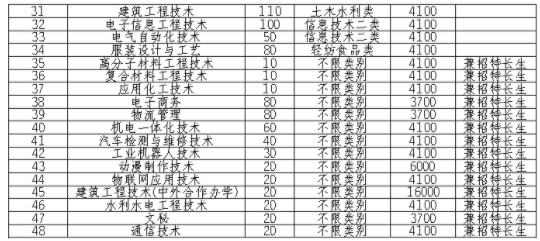 31 建筑工程技术 110 土木水利类 4100
32 电子信息工程技术 100 信息技术二类 4100
33 电气自动化技术 50 信息技术二类 4100
34 服装设计与工艺 80 轻纺食品类 4100
35 高分子材料工程技术 10 不限类别 4100 兼招特长生
36 复合材料工程技术 10 不限类别 4100 兼招特长生
37 应用化工技术 10 不限类别 4100 兼招特长生
38 电子商务 80 不限类别 3700 兼招特长生
39 物流管理 80 不限类别 3700 兼招特长生
40 机电一体化技术 60 不限类别 4100 兼招特长生
41 汽车检测与维修技术 40 不限类别 4100 兼招特长生
42 工业机器人技术 30 不限类别 4100 兼招特长生
43 动漫制作技术 20 不限类别 6000 兼招特长生
44 物联网应用技术 20 不限类别 4100 兼招特长生
45 建筑工程技术(中外合作办学) 20 不限类别 16000 兼招特长生
46 水利水电工程技术 20 不限类别 4100 兼招特长生
47 文秘 20 不限类别 3700 兼招特长生
48 通信技术 20 不限类别 4100 兼招特长生